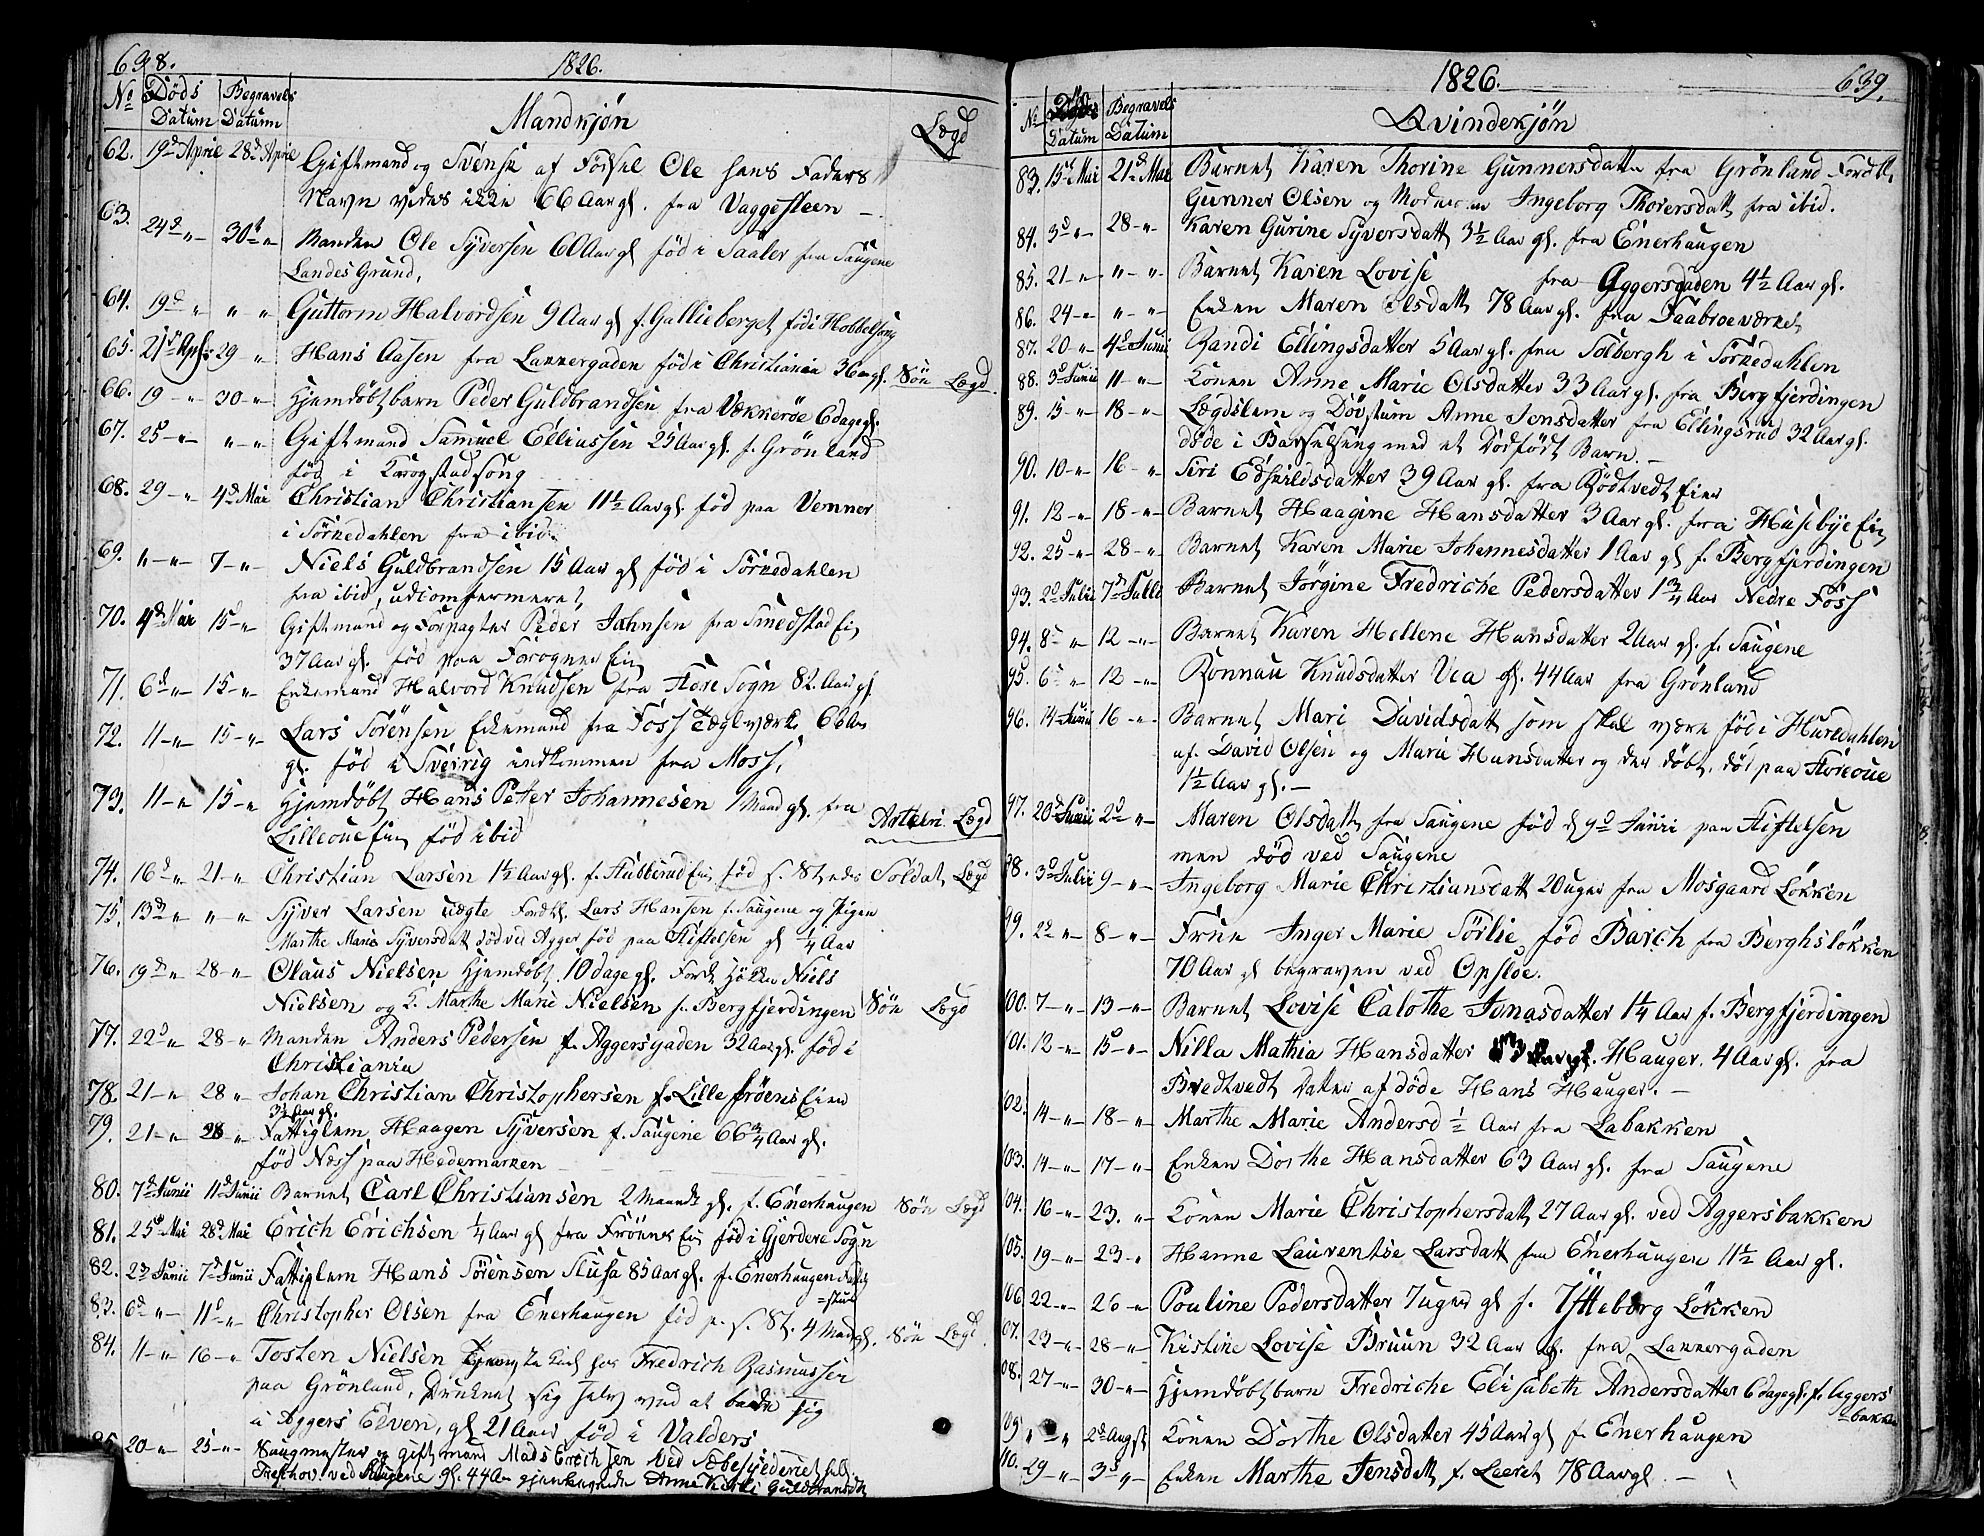 638.
1826.
No Döds Datum Begravels Datum
Mandkjön
Lægd
62. 19d April 28d April Giftmand og Svensk af Födsel Ole hans Faders
Navn vides ikke 66 Aar gl. fra Vaggesteen –
63. 24d -„- 30t -„- Manden Ole Syversen 60 Aar gl föd i Saaler fra Saugene
Landes Grund,
64. 19d „ „ „ Guttorm Halvordsen 9 Aar gl f. Gallieberget föd i Hobbelsogn
65. 21d Apr. 29 „ Hans Aasen fra Lakkergaden föd i Christiania 36 gl. Sön Lægd
66. 19 -„ 30 -„ Hjemdöbt barn Peder Guldbrandsen fra Vækkeröe 6 dage gl.
67. 25 -„ „ -„ Giftmand Samuel Elliassen 25 Aar gl. f. Grönland
föd i Krogstadsogn
68. 29 -„ 4d Mai Christian Christiansen 11½ Aar gl föd paa Vemner
i Sörkedahlen fra ibid.
69. „ -„ 7 -„ Niels Guldbrandsen 15 Aar gl föd i Sörkedahlen
fra ibid, udconfermeret
70. 4d Mai 15d „ Giftmand og Forpagter Peder Jahnsen fra Smedstad Ei
37 Aar gl. föd paa Frogner Ei
71. 6d „ 15 -„ Enkemand Halvord Knudsen fra Hore Sogn 82. Aar gl
72. 11 -„ 15 -„ Lars Sörensen Enkemand fra Foss Teglværk 66 Aar
gl. föd i Sverrig indkommen fra Moss,
73. 11 -„ 15 -„ Hjemdöbt Hans Petter Johannesen 1 Maad gl. fra
Lilleoue Ei föd ibid Artleri Lægd
74. 16d „ 21 -„ Christian Larsen 1½ Aar gl. f. Stubberud Ei föd p. Stedet Soldat Lægd
75. 13d „ „ „ Syver Larsen uægte Fordl. Lars Hansen f. Saugene og Pigen
Marthe Marie Syversdatt död ved Agger föd paa Stiftelsen gl ¼ Aar
76. 19d „ 28 -„ Olaus Nielsen Hjemdöbt 10 dage gl. Fordl Niels
Nielsen og K. Marthe Marie Nielsen f. Bergfjerdingen Sön Lægd
77. 22d „ 28 -„ Manden Anders Pedersen f. Aggersgaden 32 Aar gl. föd i
Christiania
78. 21 -„ 28 „ Johan Christian Christophersen f. Lille fröens Eien
3½ Aar gl.
79. 21 -„ 28 „ Fattiglem Haagen Syversen f. Saugene 66¾ Aar gl.
föd Næss paa Hedemarken
80. 7d Junii 11d Junii Barnet Carl Christiansen 2 Maandr gl. f. Enerhaugen Sön Lægd
81. 25d Mai 28d Mai Erich Erichsen ¼ Aar gl fra Frönnes Ei föd i Gjerdere Sogn
82. 2d Junii 7d Junii Fattiglem Hans Sörensen Slusa 85 Aar gl. f. Enerhaugen
83. 6d „ 11d „ Christopher Olsen fra Enerhaugen föd p. s. St. 4 Maad gl. Sön Lægd.
84. 11 -„ 16 -„ Tosten Nielsen hos Fredrich Rasmussen
paa Grönland, Druknet sig selv ved at bade sig
i Aggers Elven, gl 21 Aar föd i Valders
85. 20 -„ 25 -„ Saugmester og gift mand Mads Erichsen ved Sæbesyderiet
ved Saugene gl. 44 Aar Anne Guldbransdt
1826.
639.
No Döds Datum Begravels Datum
Qvindekjön
83. 15d Mai 21d Mai Barnet Karen Thorine Gunnersdatter fra Grönland Fordl.
Gunner Olsen og Moderen Ingeborg Thoresdatt fra ibid.
84. 3d „ 28 -„ Karen Gurine Syversdatt 3½ Aar gl. fra Enerhaugen
85. 21 -„ „ „ Barnet Karen Lovise fra Aggersgaden 4½ Aar gl.
86. 24 -„ „ „ Enken Maren Olsdatt 78 Aar gl. fra Faabroeværket
87. 20 -„ 4d Junii Randi Ellingsdatter 5 Aar gl. fra Solbergh i Sörkedahlen
88. 3d Junii 11 -„ Konen Anne Marie Olsdatter 33 Aar gl. fra Bergfjerdingen
89. 15 -„ 18 -„ Lægdslem og Dövstum Anne Jensdatter fra Ellingsrud 32 Aar gl.
döde i Barselseng med et Dödfödt Barn. –
90. 10 -„ 16 -„ Siri Edsvildsdatter 39 Aar gl. fra Rödtvedt Eier
91. 12 -„ 18 -„ Barnet Haagine Hansdatter 3 Aar gl. fra Husebye Ei
92. 25d -„ 28 -„ Barnet Karen Marie Johannesdatter 1 Aar gl f. Bergfjerdingen
93. 2d Julii 7d Julli Barnet Jörgine Fredriche Pedersdatter 1¾ Aar Nedre Foss
94. 8 -„ 12 -„ Barnet Karen Hellene Hansdatter 2 Aar gl. f. Saugene
95. 6 -„ 12 -„ Ronnau Knudsdatter Vea gl. 44 Aar fra Grönland
96. 14 Junii 16 -„ Barnet Mari Davidsdatt som skal være föd i Hurdahlen
af. David Olsen og Marie Hansdatter og der döbt. död paa Horeoue
1½ Aar gl. –
97. 20d Junii 2d „ Maren Olsdatt fra Saugene föd d 9d Junii paa Stiftelsen
men död ved Saugene
98. 3d Julii 9 -„ Ingeborg Marie Christiansdatt 20 uger fra Mosgaard Lökken
99. 2d „ 8 -„ Frue Inger Marie Sörlie föd Barch fra Berghslökken
70 Aar gl begraven ved Opsloe.
100. 7 -„ 13 -„ Barnet Lovise Calothe Jonasdatter 1¼ Aar f. Bergfjerdingen
101. 12 -„ 15d „ Nilla Mathia Hansdatter Hauger. 4 Aar gl. fra
Bredtvedt Datter af döde Hans Hauger. –
102. 14 -„ 18 -„ Marthe Marie Andersd ½ Aar fra Labakken
103. 14 -„ 17 -„ Enken Dorthe Hansdatter 63 Aar gl. fra Saugene
104. 16 -„ 23. „ Konen Marie Christophersdatt 27 Aar gl. ved Aggersbakken
105. 19 -„ 23 -„ Hanne Laurentse Larsdatt fra Enerhaugen 11½ Aar gl.
106. 22 -„ 26 -„ Pouline Pedersdatter 7 uger gl f. Ytteborg Lökken
107. 23 -„ 28 -„ Kistine Lovise Bruun 32 Aar gl. fra Lakkergaden
108. 27 -„ 30 -„ Hjemdöbt barn Fredriche Elisabeth Andersdatter 6 dage gl. f. Aggers=
bakken
109. „ „ 2d Augst Konen Dorthe Olsdatter 45 Aar gl f. Enerhaugen
110. 29 -„ 3d „ Enken Marthe Jensdatt f. Leeret 78 Aar gl. –